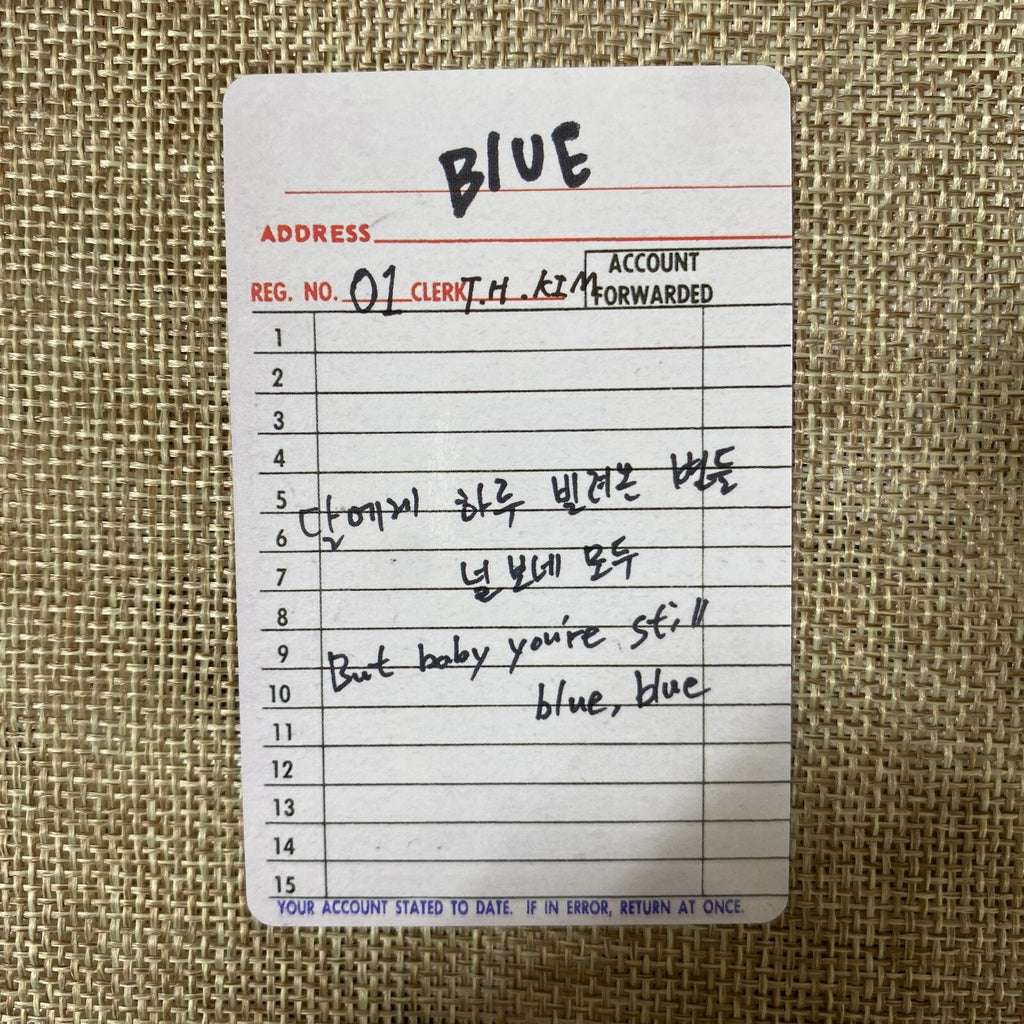 BlUE
ADDRESS
REG. NO. 01 CLERK T.H.KIM ACCOUNT FORWARDED
1
2
3
4
5
달에게 하루 빌려온 별들
6
7
널 보네 모두
8
9
But baby you're still
10
blue, blue
11
12
13
14
15
YOUR ACCOUNT STATED TO DATE. IF IN ERROR, RETURN AT ONCE.